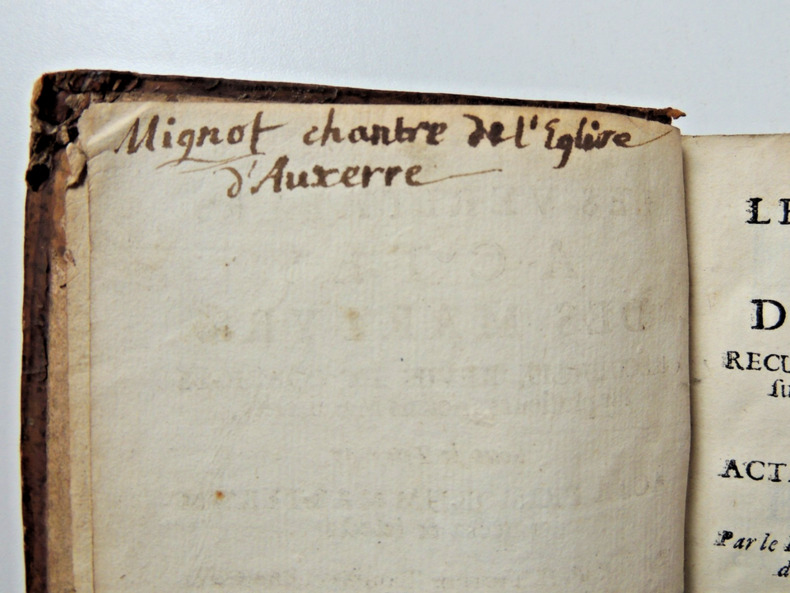 Mignot chantre de l'Eglise
d'Auxerre
LE
D
RECU
su
ACTA
Par le
d